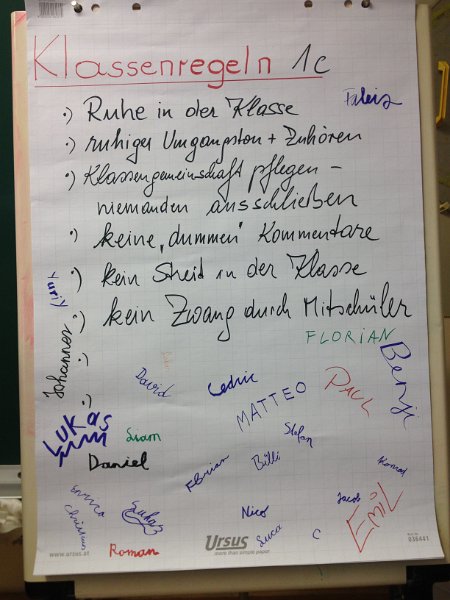 Klassenregeln 1c
Fabris
.) Ruhe in der Klasse
.) ruhiger Umgangston + Zuhören
.) Klassengemeinschaft pflegen –
niemanden ausschließen
.) keine „dummen" Kommentare
.) kein Streit in der Klasse
.) kein Zwang durch Mitschüler
Yuriy
FLORIAN
Johannes
Benji
David
Cedric
MATTEO
LUKAS
Siam
Stefan
Daniel
Fabian
Billi
Konrad
Enrico
Christian
Nico
Jacob
EMIL
Luca
C
Roman
Ursus
more than simple paper
www.ursus.at
038441